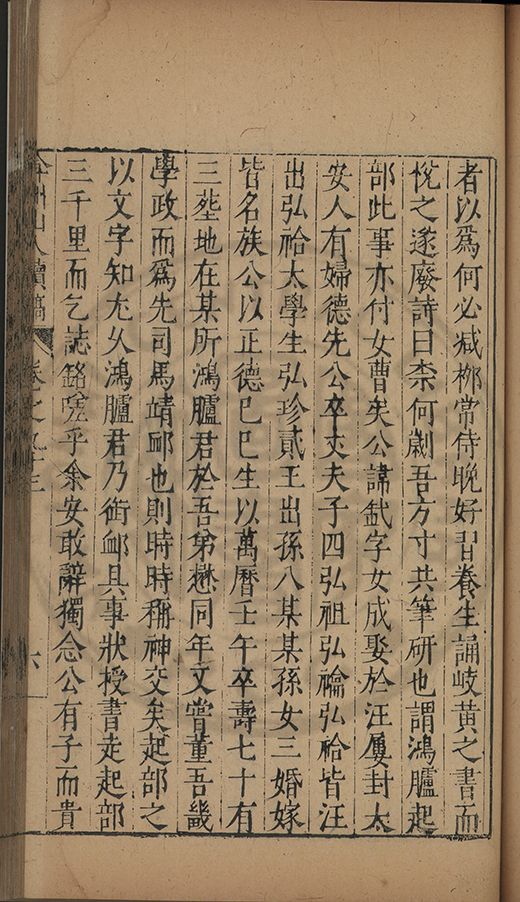 者以爲何必减栁常侍晚好習養生誦岐黄之書而
悅之遂廢詩曰柰何劌吾方寸共筆研也謂鴻臚起
部此事亦付女曹矣公諱鉞字女成娶於汪屢封太
安人有婦德先公卒丈夫子四弘祖弘禴弘祫皆汪
出弘祫太學生弘珍貳王出孫八某某孫女三婚嫁
皆名族公以正德己巳生以萬曆壬午卒壽七十有
三塟地在某所鴻臚君於吾弟懋同年文嘗董吾畿
學政而爲先司馬靖郵也則時時稱神交矣起部之
以文字知尤乆鴻臚君乃銜邮具事狀授書走起部
三千里而乞誌銘嗟乎余安敢辭獨念公有子而貴
弇州山人續稿 卷之九十三 六